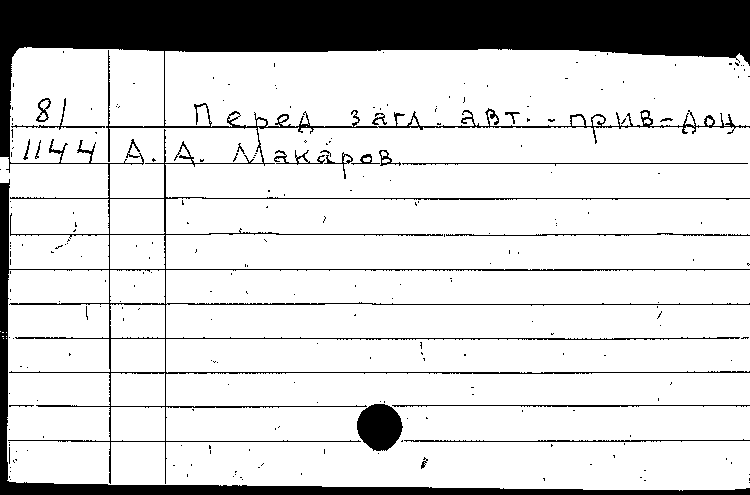 81 Перед загл. авт. - прив-доц
1144 А. А. Макаров